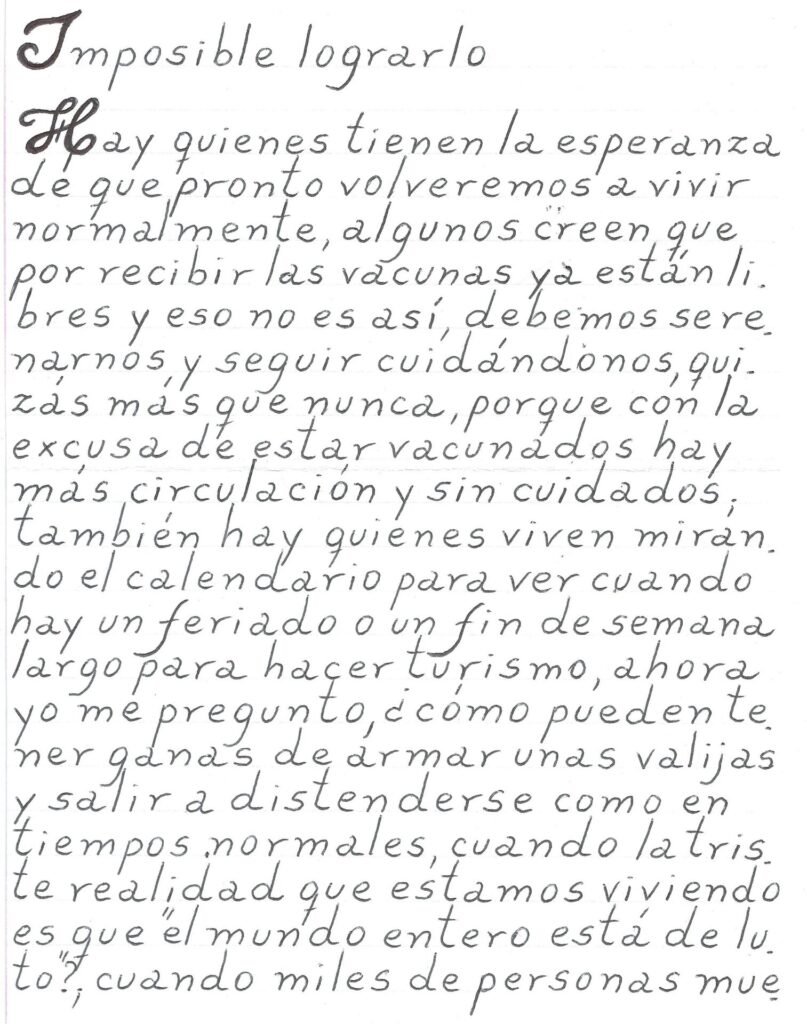 Imposible lograrlo
Hay quienes tienen la esperanza
de que pronto volveremos a vivir
normalmente, algunos creen que
por recibir las vacunas ya están li-
bres y eso no es así, debemos sere-
narnos y seguir cuidándonos, qui-
zás más que nunca, porque con la
excusa de estar vacunados hay
más circulación y sin cuidados;
también hay quienes viven miran-
do el calendario para ver cuando
hay un feriado o un fin de semana
largo para hacer turismo, ahora
yo me pregunto, ¿cómo pueden te-
ner ganas de armar unas valijas
y salir a distenderse como en
tiempos normales, cuando la tris-
te realidad que estamos viviendo
es que "el mundo entero está de lu-
to"?, cuando miles de personas mue